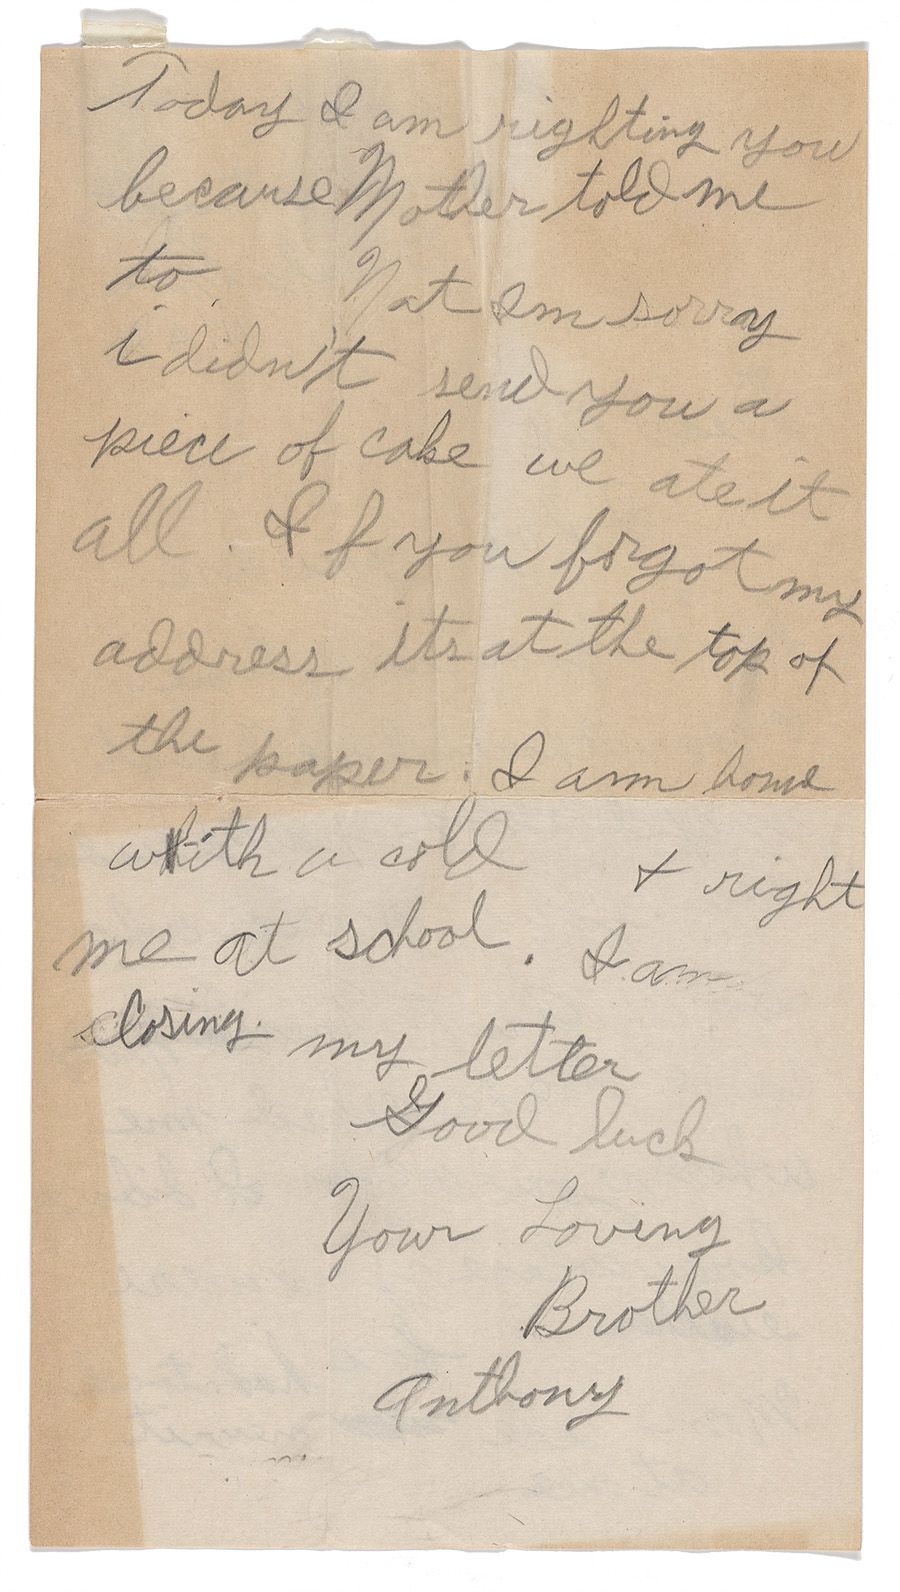 Today I am righting you
because Mother told me
to. Nat Im sorry
i didn't send you a
piece of cake we ate it
all. If you forgot my
address its at the top of
the paper. I am home
with a cold & right
me at school. I am
closing my letter
Good luck
Your Loving
Brother
Anthony